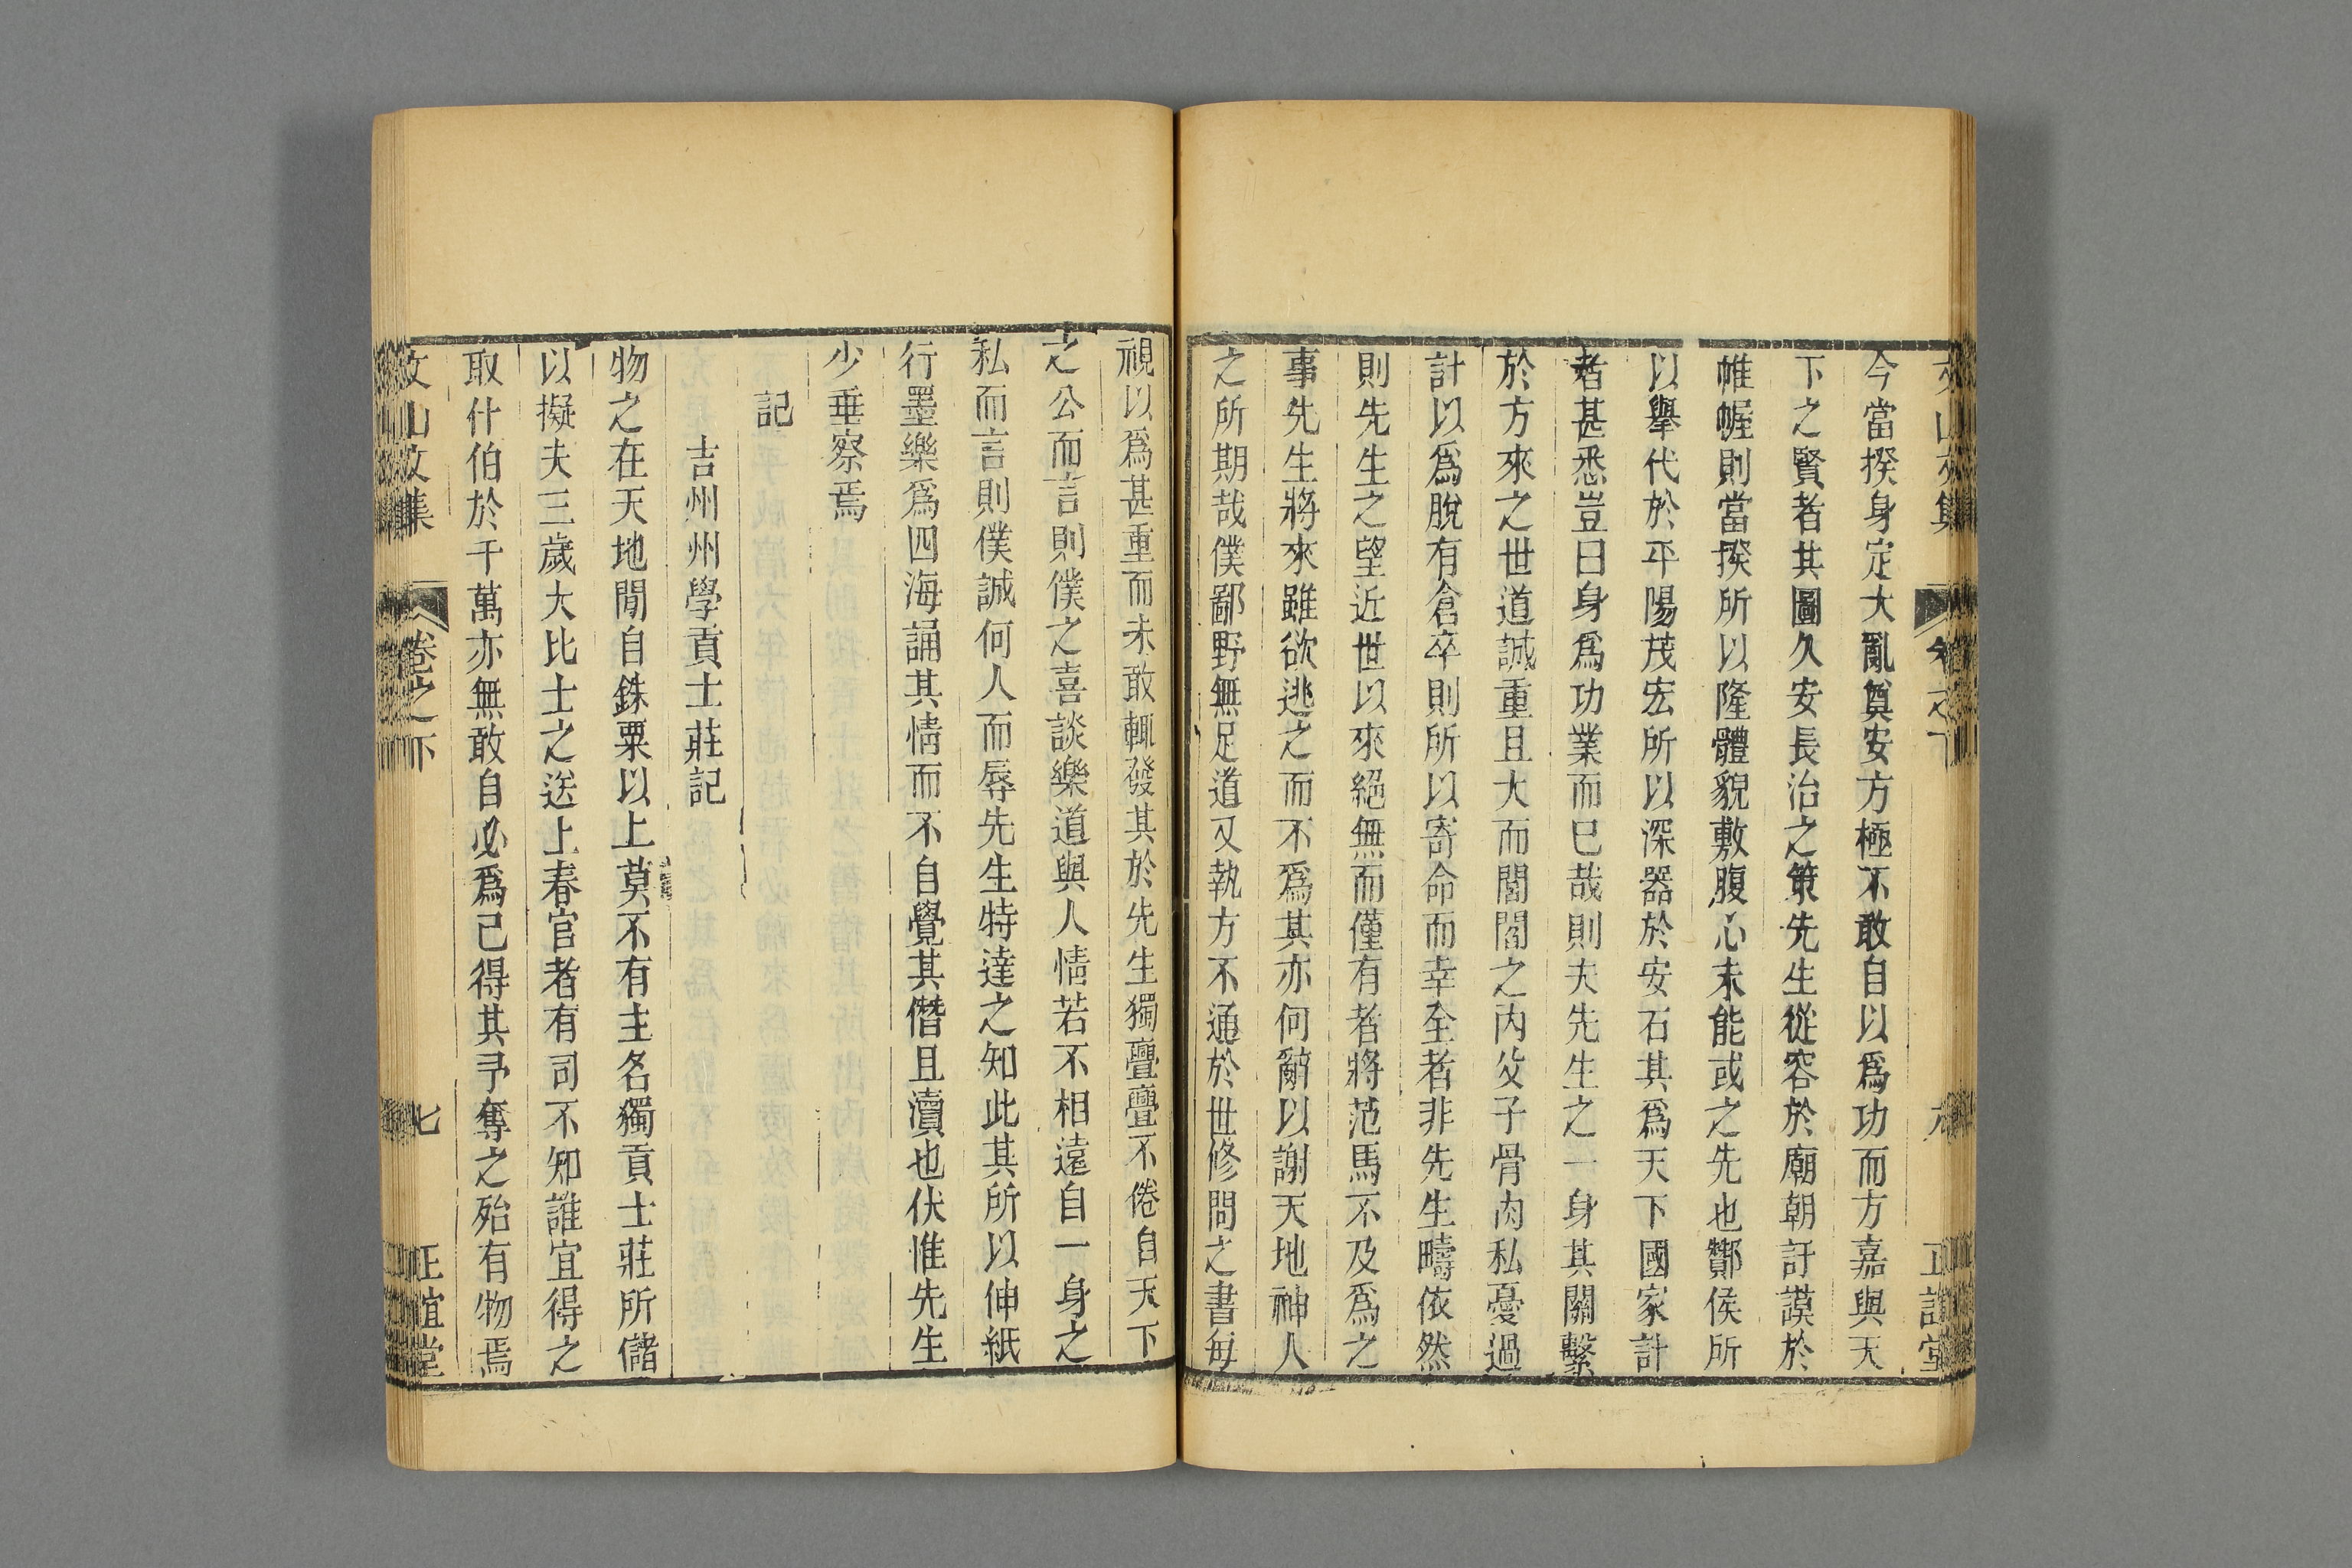 今當揆身定大亂奠安方極不敢自以爲功而方嘉與天
下之賢者其圖久安長治之策先生從容於廟朝訏謨於
帷幄則當揆所以隆體貌敷腹心未能或之先也酇侯所
以舉代於平陽茂宏所以深器於安石其爲天下國家計
者甚悉豈曰身爲功業而已哉則夫先生之一身其關繫
於方來之世道誠重且大而閭閻之內父子骨肉私憂過
計以爲脫有倉卒則所以寄命而幸全者非先生疇依然
則先生之望近世以來絕無而僅有者將范馬不及爲之
事先生將來雖欲逃之而不爲其亦何辭以謝天地神人
之所期哉僕鄙野無足道又執方不通於世修問之書每
視以爲甚重而未敢輒發其於先生獨亹亹不倦自天下
之公而言則僕之喜談樂道與人情若不相遠自一身之
私而言則僕誠何人而辱先生特達之知此其所以伸紙
行墨樂爲四海誦其情而不自覺其僭且瀆也伏惟先生
少垂察焉
記
吉州州學貢士莊記
物之在天地閒自銖粟以上莫不有主名獨貢士莊所儲
以擬夫三歲大比士之送上春官者有司不知誰宜得之
取什伯於千萬亦無敢自必爲己得其予奪之殆有物焉
文山文集 卷之下 七 正誼堂